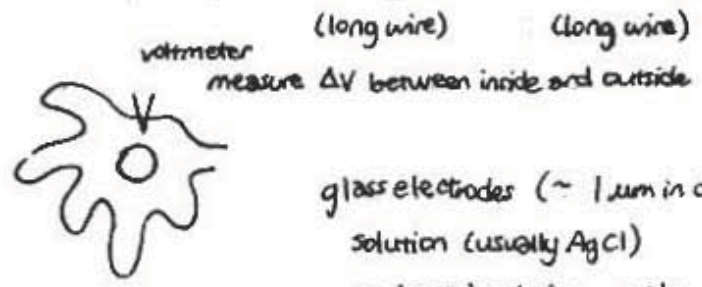 (long wire) (long wire)
voltmeter
measure ΔV between inside and outside
glass electrodes (~ 1 μm in
solution (usually AgCl)